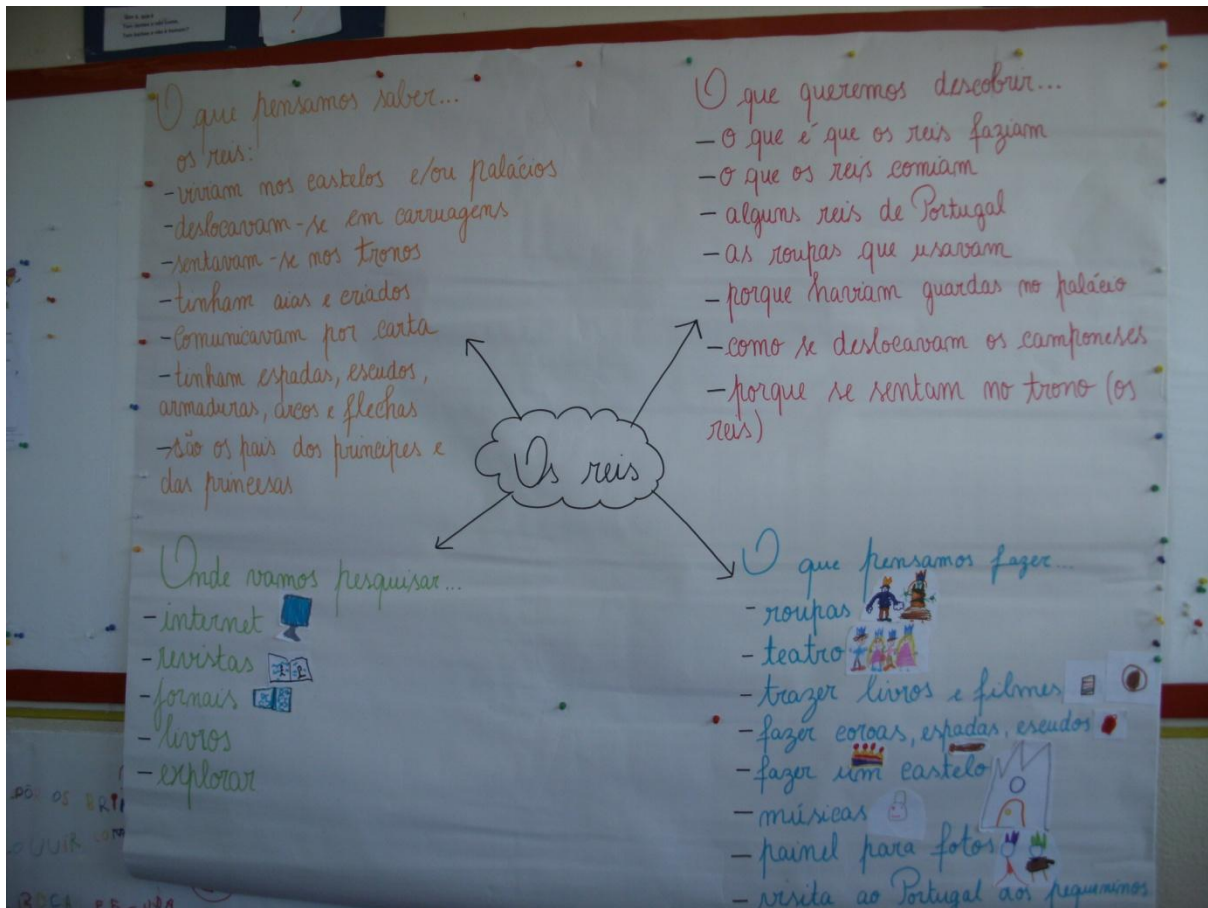 O que pensamos saber...
os reis:
- viviam nos castelos e/ou palácios
- deslocavam-se em carruagens
- sentavam-se nos tronos
- tinham aias e criados
- comunicavam por carta
- tinham espadas, escudos,
armaduras, arcos e flechas
- são os pais dos principes e
das princesas
O que queremos descobrir...
- o que é que os reis faziam
- o que os reis comiam
- alguns reis de Portugal
- as roupas que usavam
- porque haviam guardas no palácio
- como se deslocavam os camponeses
- porque se sentam no trono (os
reis)
Os reis
Onde vamos pesquisar...
- internet
- revistas
- jornais
- livros
- explorar
O que pensamos fazer...
- roupas
- teatro
- trazer livros e filmes
- fazer coroas, espadas, escudos
- fazer um castelo
- músicas
- painel para fotos
- visita ao Portugal aos pequeninos